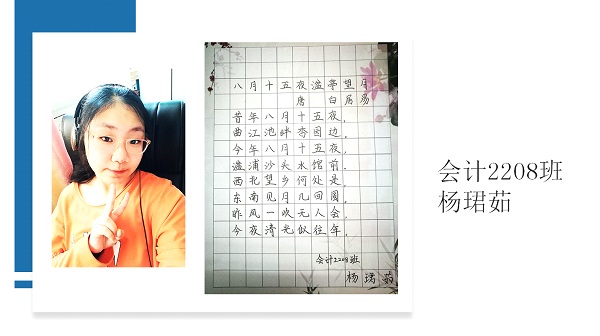 八月十五夜湓亭望月
唐 白居易
昔年八月十五夜,
曲江池畔杏园边.
今年八月十五夜,
湓浦沙头水馆前.
西北望乡何处是,
东南见月几回圆.
昨风一吹无人会,
今夜清光似往年.
会计2208班
杨珺茹
会计2208班
杨珺茹